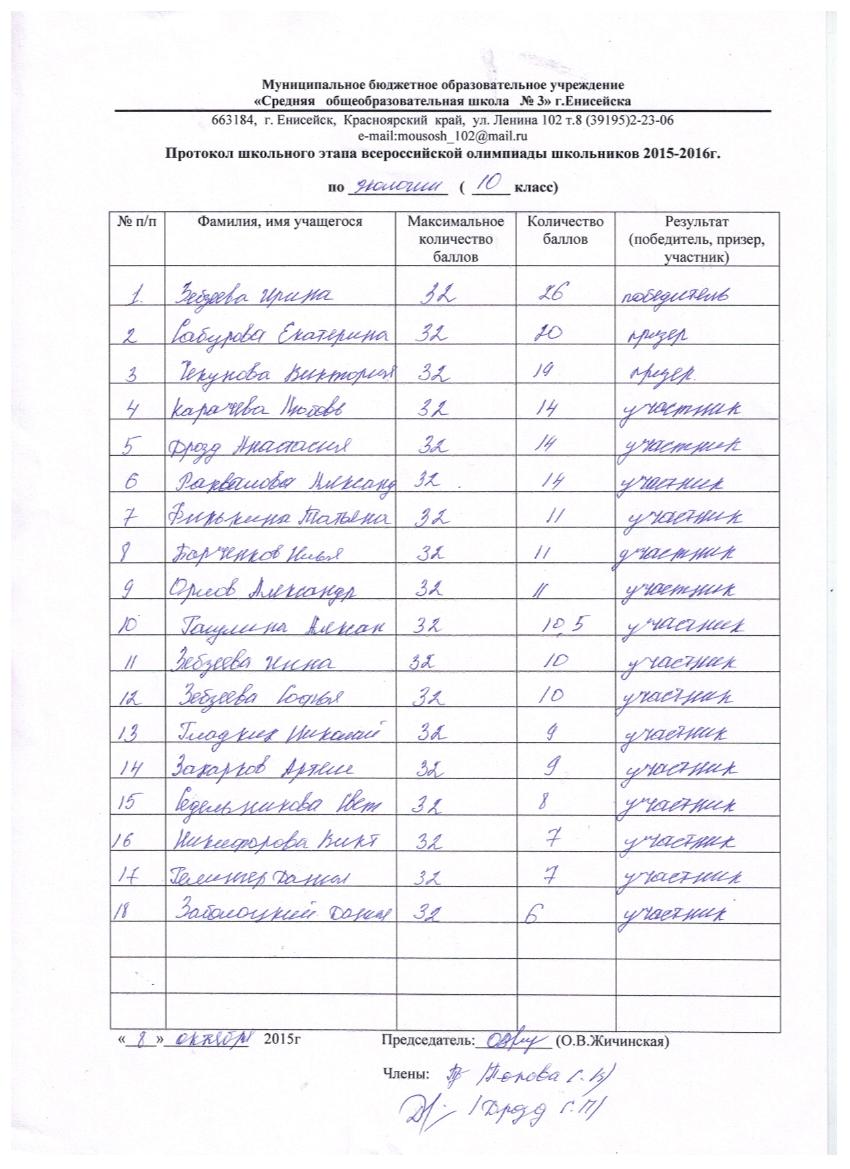 Муниципальное бюджетное образовательное учреждение
«Средняя общеобразовательная школа № 3» г.Енисейска
663184, г. Енисейск, Красноярский край, ул. Ленина 102 т.8 (39195)2-23-06
e-mail:mousosh_102@mail.ru
Протокол школьного этапа всероссийской олимпиады школьников 2015-2016г.
по экологии ( 10 класс)
№ п/п Фамилия, имя учащегося Максимальное количество баллов Количество баллов Результат (победитель, призер, участник)
1. Зебзеева Ирина 32 26 победитель
2 Сабурова Екатерина 32 20 призер
3 Чекунова Виктория 32 19 призер.
4 Карачева Любовь 32 14 участник
5 Дрозд Анастасия 32 14 участник
6 Рахвалова Александ 32 14 участник
7 Филькина Татьяна 32 11 участник
8 Барченков Илья 32 11 участник
9 Орлов Александр 32 11 участник
10 32 10,5 участник
11 Зебзеева Инна 32 10 участник
12 Зебзеева Софья 32 10 участник
13 Гладких Николай 32 9 участник
14 Захарков Артем 32 9 участник
15 Седельникова Свет 32 8 участник
16 Никифорова Викт 32 7 участник
17 Данил 32 7 участник
18 Заболоцкий Данил 32 6 участник
« 8 » октября 2015г Председатель: (О.В.Жичинская)
Члены: /Попова С.В/
/Дрозд С.П/